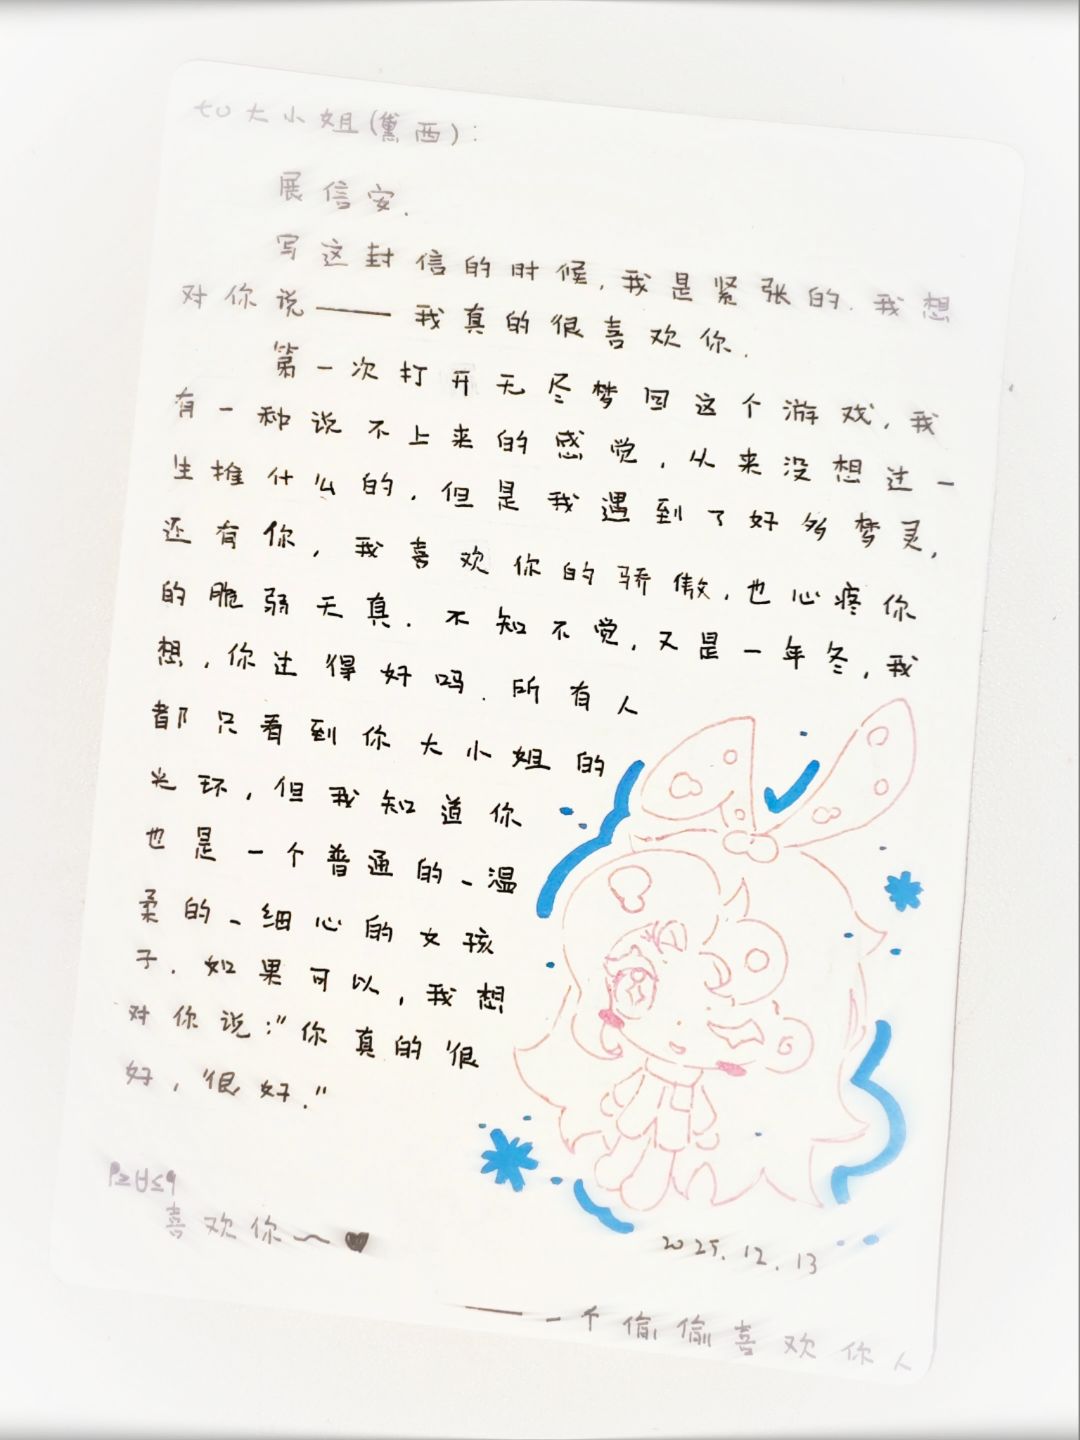 大小姐(黛西):
展信安.
写这封信的时候,我是紧张的.我想
对你说——我真的很喜欢你.
第一次打开无尽梦回这个游戏,我
有一种说不上来的感觉,从来没想过一
生推什么的.但是我遇到了好多梦灵,
还有你,我喜欢你的骄傲,也心疼你
的脆弱天真.不知不觉,又是一年冬,我
想,你过得好吗.所有人
都只看到你大小姐的
光环,但我知道你
也是一个普通的、温
柔的、细心的女孩
子.如果可以,我想
对你说:"你真的很
好,很好."
喜欢你~♥
2025.12.13
——一个偷偷喜欢你人